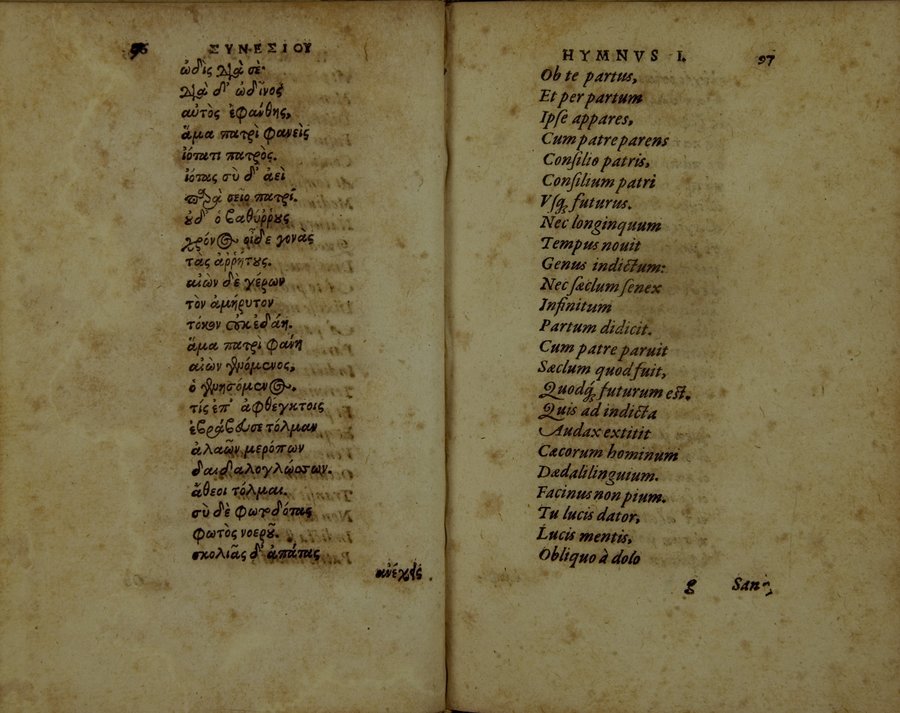 96 ΣΥΝΕΣΙΟΥ
ὠδὶς διὰ σὲ·
διὰ δ᾽ ὠδῖνος
αὐτὸς ἐφάνθης,
ἅμα πατρὶ φανεὶς
ἰότατι πατρὸς.
ἰότας σὺ δ᾽ ἀεὶ
παρὰ σεῖο πατρί.
οὐδ᾽ ὁ βαθύῤῥους
χρόνος οἶδε γονὰς
τὰς ἀῤῥήτους.
αἰὼν δὲ γέρων
τὸν ἀμήρυτον
τόκον οὐκ ἐδάη.
ἅμα πατρὶ φάνη
αἰὼν γενόμενος,
ὁ γενησόμενος.
τίς ἐπ᾽ ἀφθέγκτοις
ἐβράβευσε τόλμαν
ἀλαῶν μερόπων
δαιδαλογλώσσων.
ἄθεοι τόλμαι.
σὺ δὲ φωτοδότας
φωτὸς νοεροῦ.
σκολιᾶς δ᾽ ἀπάτας
ἀνέχεις
HYMNVS I. 97
Ob te partus,
Et per partum
Ipſe appares,
Cum patre parens
Conſilio patris,
Conſilium patri
Vſq; futurus.
Nec longinquum
Tempus nouit
Genus indictum:
Nec ſæclum ſenex
Infinitum
Partum didicit.
Cum patre paruit
Sæclum quod fuit,
Quodq; futurum est.
Quis ad indicta
Audax extitit
Cæcorum hominum
Dædalilinguium.
Facinus non pium.
Tu lucis dator,
Lucis mentis,
Obliquo à dolo
g San